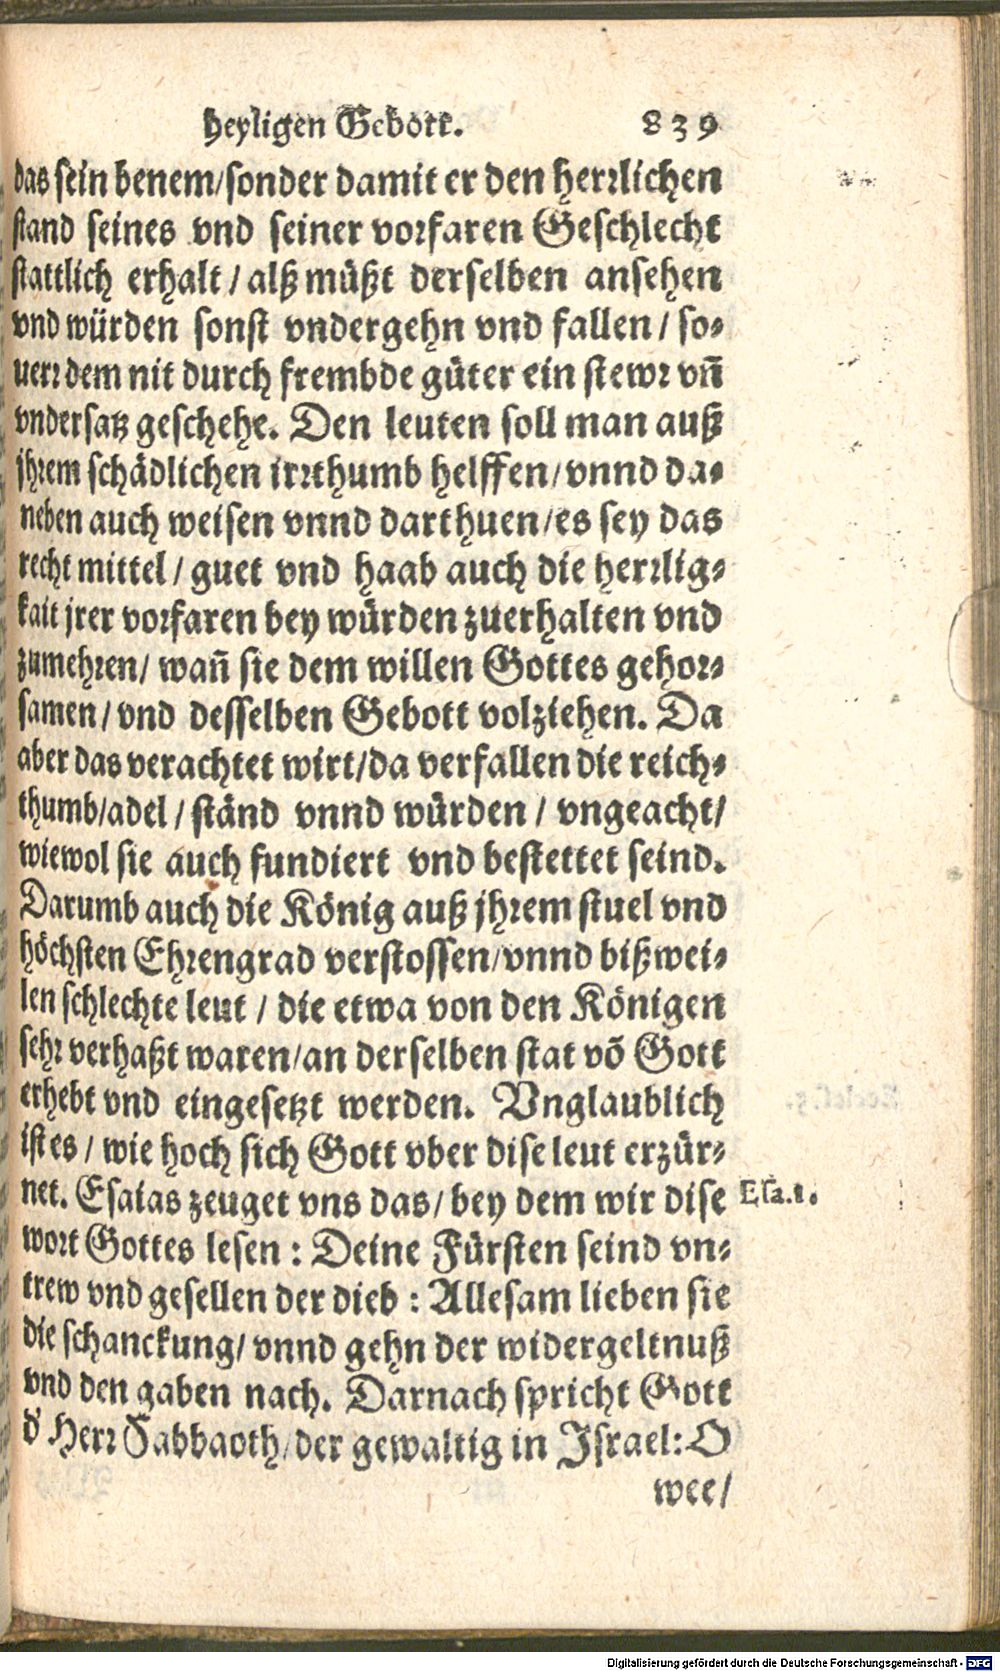 heyligen Gebott. 839
das sein benem/sonder damit er den herrlichen
stand seines vnd seiner vorfaren Geschlecht
stattlich erhalt / alß müßt derselben ansehen
vnd würden sonst vndergehn vnd fallen / so-
uerr dem nit durch frembde güter ein stewr vñ
vndersatz geschehe. Den leuten soll man auß
jhrem schädlichen irrthumb helffen/vnnd da-
neben auch weisen vnnd darthuen/es sey das
recht mittel / guet vnd haab auch die herrlig-
kait jrer vorfaren bey würden zuerhalten vnd
zumehren/ wañ sie dem willen Gottes gehor-
samen/ vnd desselben Gebott volziehen. Da
aber das verachtet wirt/da verfallen die reich-
thumb/adel / ständ vnnd würden / vngeacht/
wiewol sie auch fundiert vnd bestettet seind.
Darumb auch die König auß jhrem stuel vnd
höchsten Ehrengrad verstossen/vnnd bißwei-
len schlechte leut / die etwa von den Königen
sehr verhaßt waren/an derselben stat võ Gott
erhebt vnd eingesetzt werden. Vnglaublich
ist es / wie hoch sich Gott vber dise leut erzür-
net. Esaias zeuget vns das/ bey dem wir dise Esa.1.
wort Gottes lesen : Deine Fürsten seind vn-
trew vnd gesellen der dieb : Allesam lieben sie
die schanckung/ vnnd gehn der widergeltnuß
vnd den gaben nach. Darnach spricht Gott
d' Herr Sabbaoth/der gewaltig in Israel: O
wee/
Digitalisierung gefördert durch die Deutsche Forschungsgemeinschaft - DFG